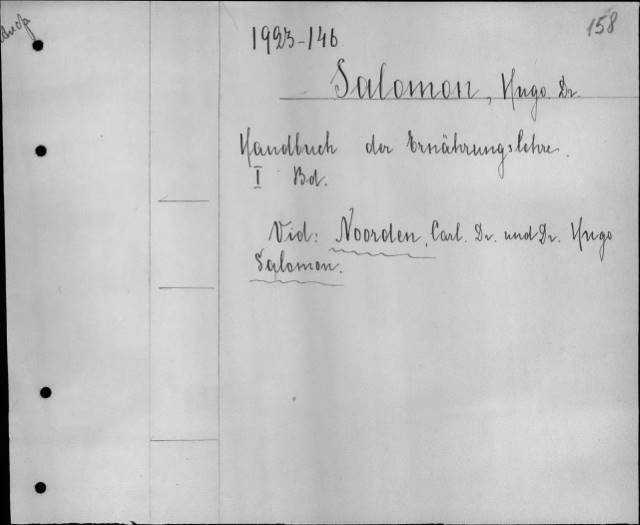 158
1923-146
Salomon, Hugo Dr.
Handbuch der Ernährungslehre.
I Bd.
Vid: Noorden, Carl. Dr. und Dr. Hugo
Salomon.